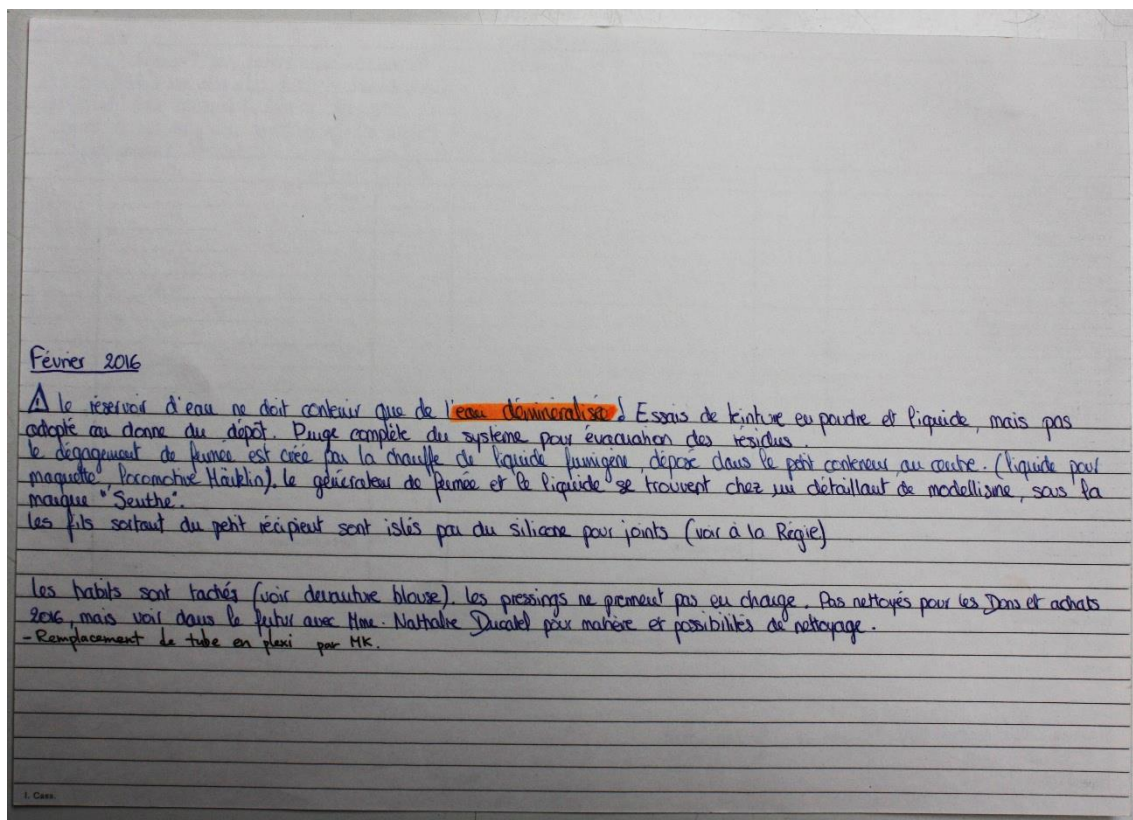 Février 2016
⚠ le réservoir d'eau ne doit contenir que de l'eau déminéralisée! Essais de teinture en poudre et liquide, mais pas
adopté car donne du dépôt. Purge complète du système pour évacuation des résidus.
le dégagement de fumée est créé par la chauffe de liquide fumigène, déposé dans le petit conteneur au centre. (liquide pour
maquette, locomotive Märklin). le générateur de fumée et le liquide se trouvent chez un détaillant de modellisme, sous la
marque "Seuthe".
les fils sortant du petit récipient sont islés par du silicone pour joints (voir à la Régie)
les habits sont tachés (voir devanture blouse). les pressings ne prennent pas en charge. Pas nettoyés pour les Dons et achats
2016, mais voir dans le futur avec Mme. Nathalie Ducatel pour matière et possibilités de nettoyage.
-Remplacement de tube en plexi par MK.